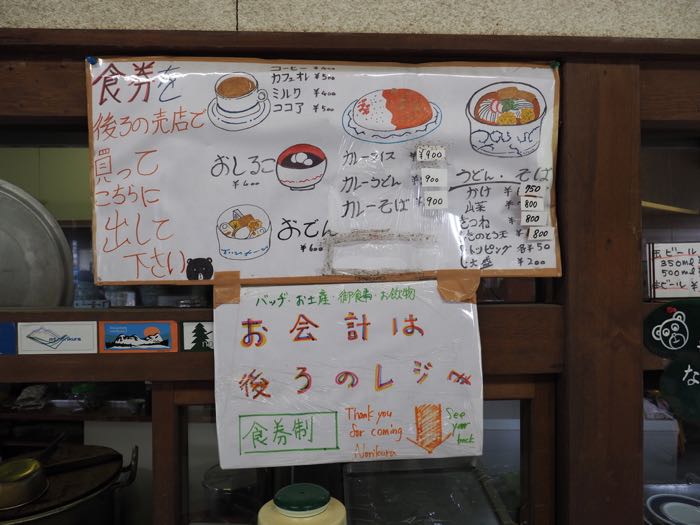 食券を
後ろの売店で
買って
こちらに
出して
下さい
コーヒー ¥400
カフェオレ ¥500
ミルク ¥400
ココア ¥500
おしるこ
¥600
おでん
¥600
カレーライス ¥900
カレーうどん 900
カレーそば 900
うどん・そば
かけ ¥750
山菜 ¥800
きつね ¥800
きのこ天 ¥800
トッピング 各¥50
大盛 ¥200
バッヂ・お土産・御食事・お飲物
お会計は
後ろのレジへ
食券制
Thank you
for coming
Norikura
See
your
back
生ビール
350ml
500ml
生ビール ¥
な